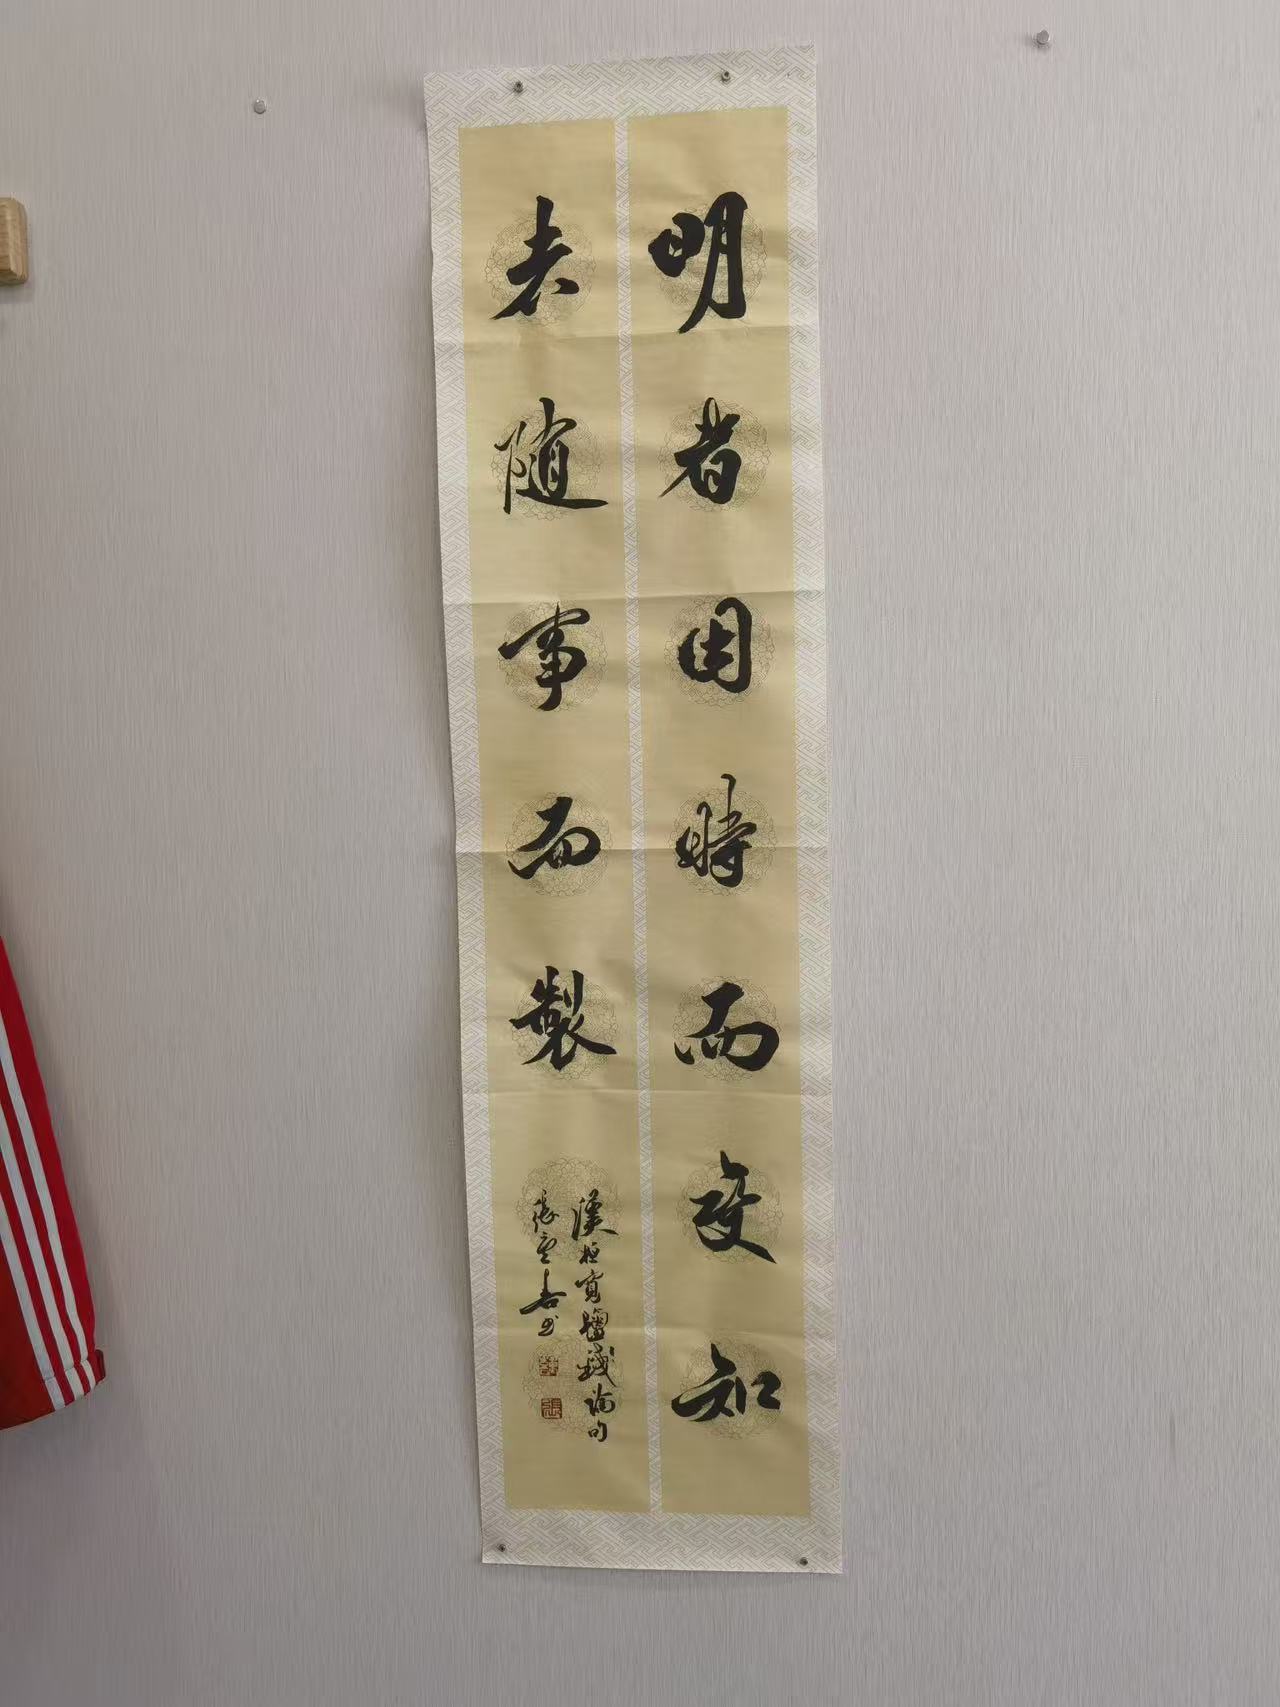 明者因時而變知
者隨事而製
漢桓寬鹽鐵論句
張雲